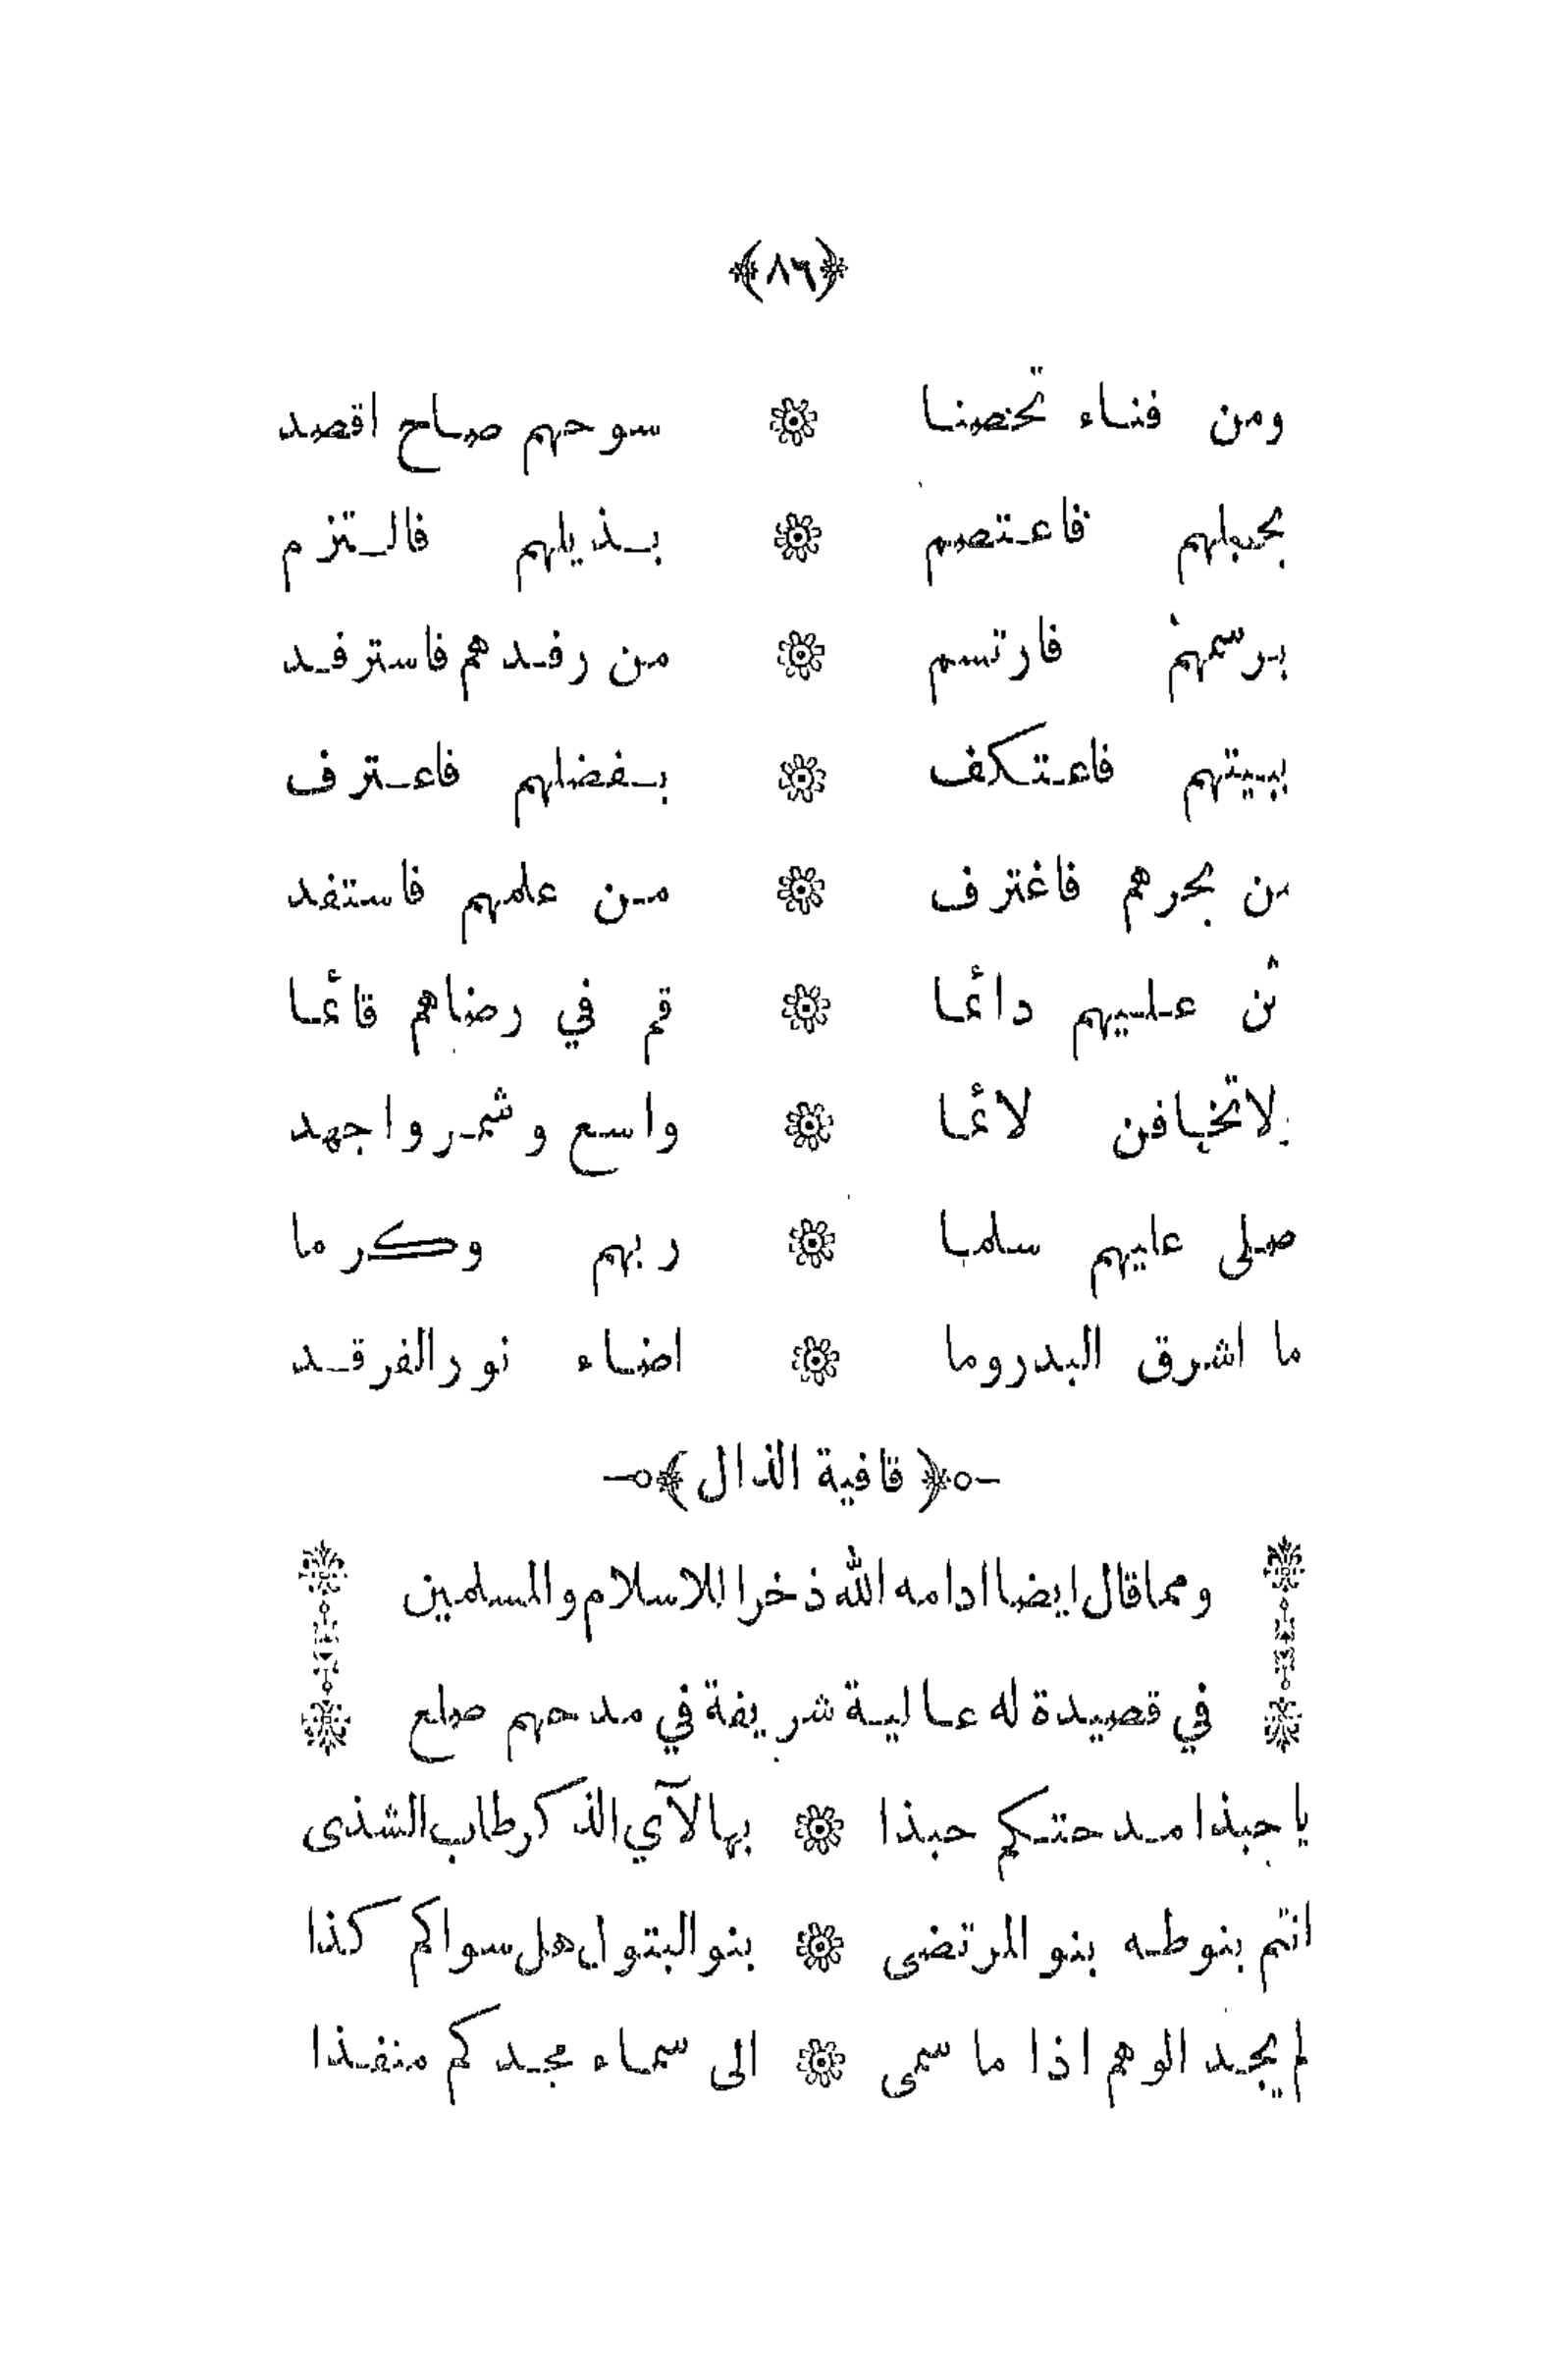 ﴿٨٦﴾
ومن فناء تخصنا ۞ سوحهم صاح اقصد
بحبلهم فاعتصم ۞ بذيلهم فالتزم
برسمهم فارتسم ۞ من رفدهم فاسترفد
ببيتهم فاعتكف ۞ بفضلهم فاعترف
من بحرهم فاغترف ۞ من علمهم فاستفد
ثن عليهم دائما ۞ قم في رضاهم قائما
لاتخافن لائما ۞ واسع وشمر واجهد
صلى عليهم سلما ۞ ربهم وكرما
ما اشرق البدر وما ۞ اضاء نور الفرقد
﴿ قافية الذال ﴾
ومما قال ايضا ادامه الله ذخرا للاسلام والمسلمين
في قصيدة له عالية شريفة في مدحهم صلع
يا حبذا مدحتكم حبذا ۞ بها لآي الذكر طاب الشذى
انتم بنو طه بنو المرتضى ۞ بنو البتول هل سواكم كذا
لم يجد الوهم اذا ما سمى ۞ الى سماء مجدكم منفذا